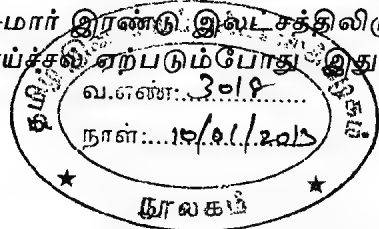 மார் இரண்டு இலட்சத்தி
ய்ச்சல் ஏற்படும்போது இது
வ.எண்: 3018
நாள்: 10/01/2013
நூலகம்